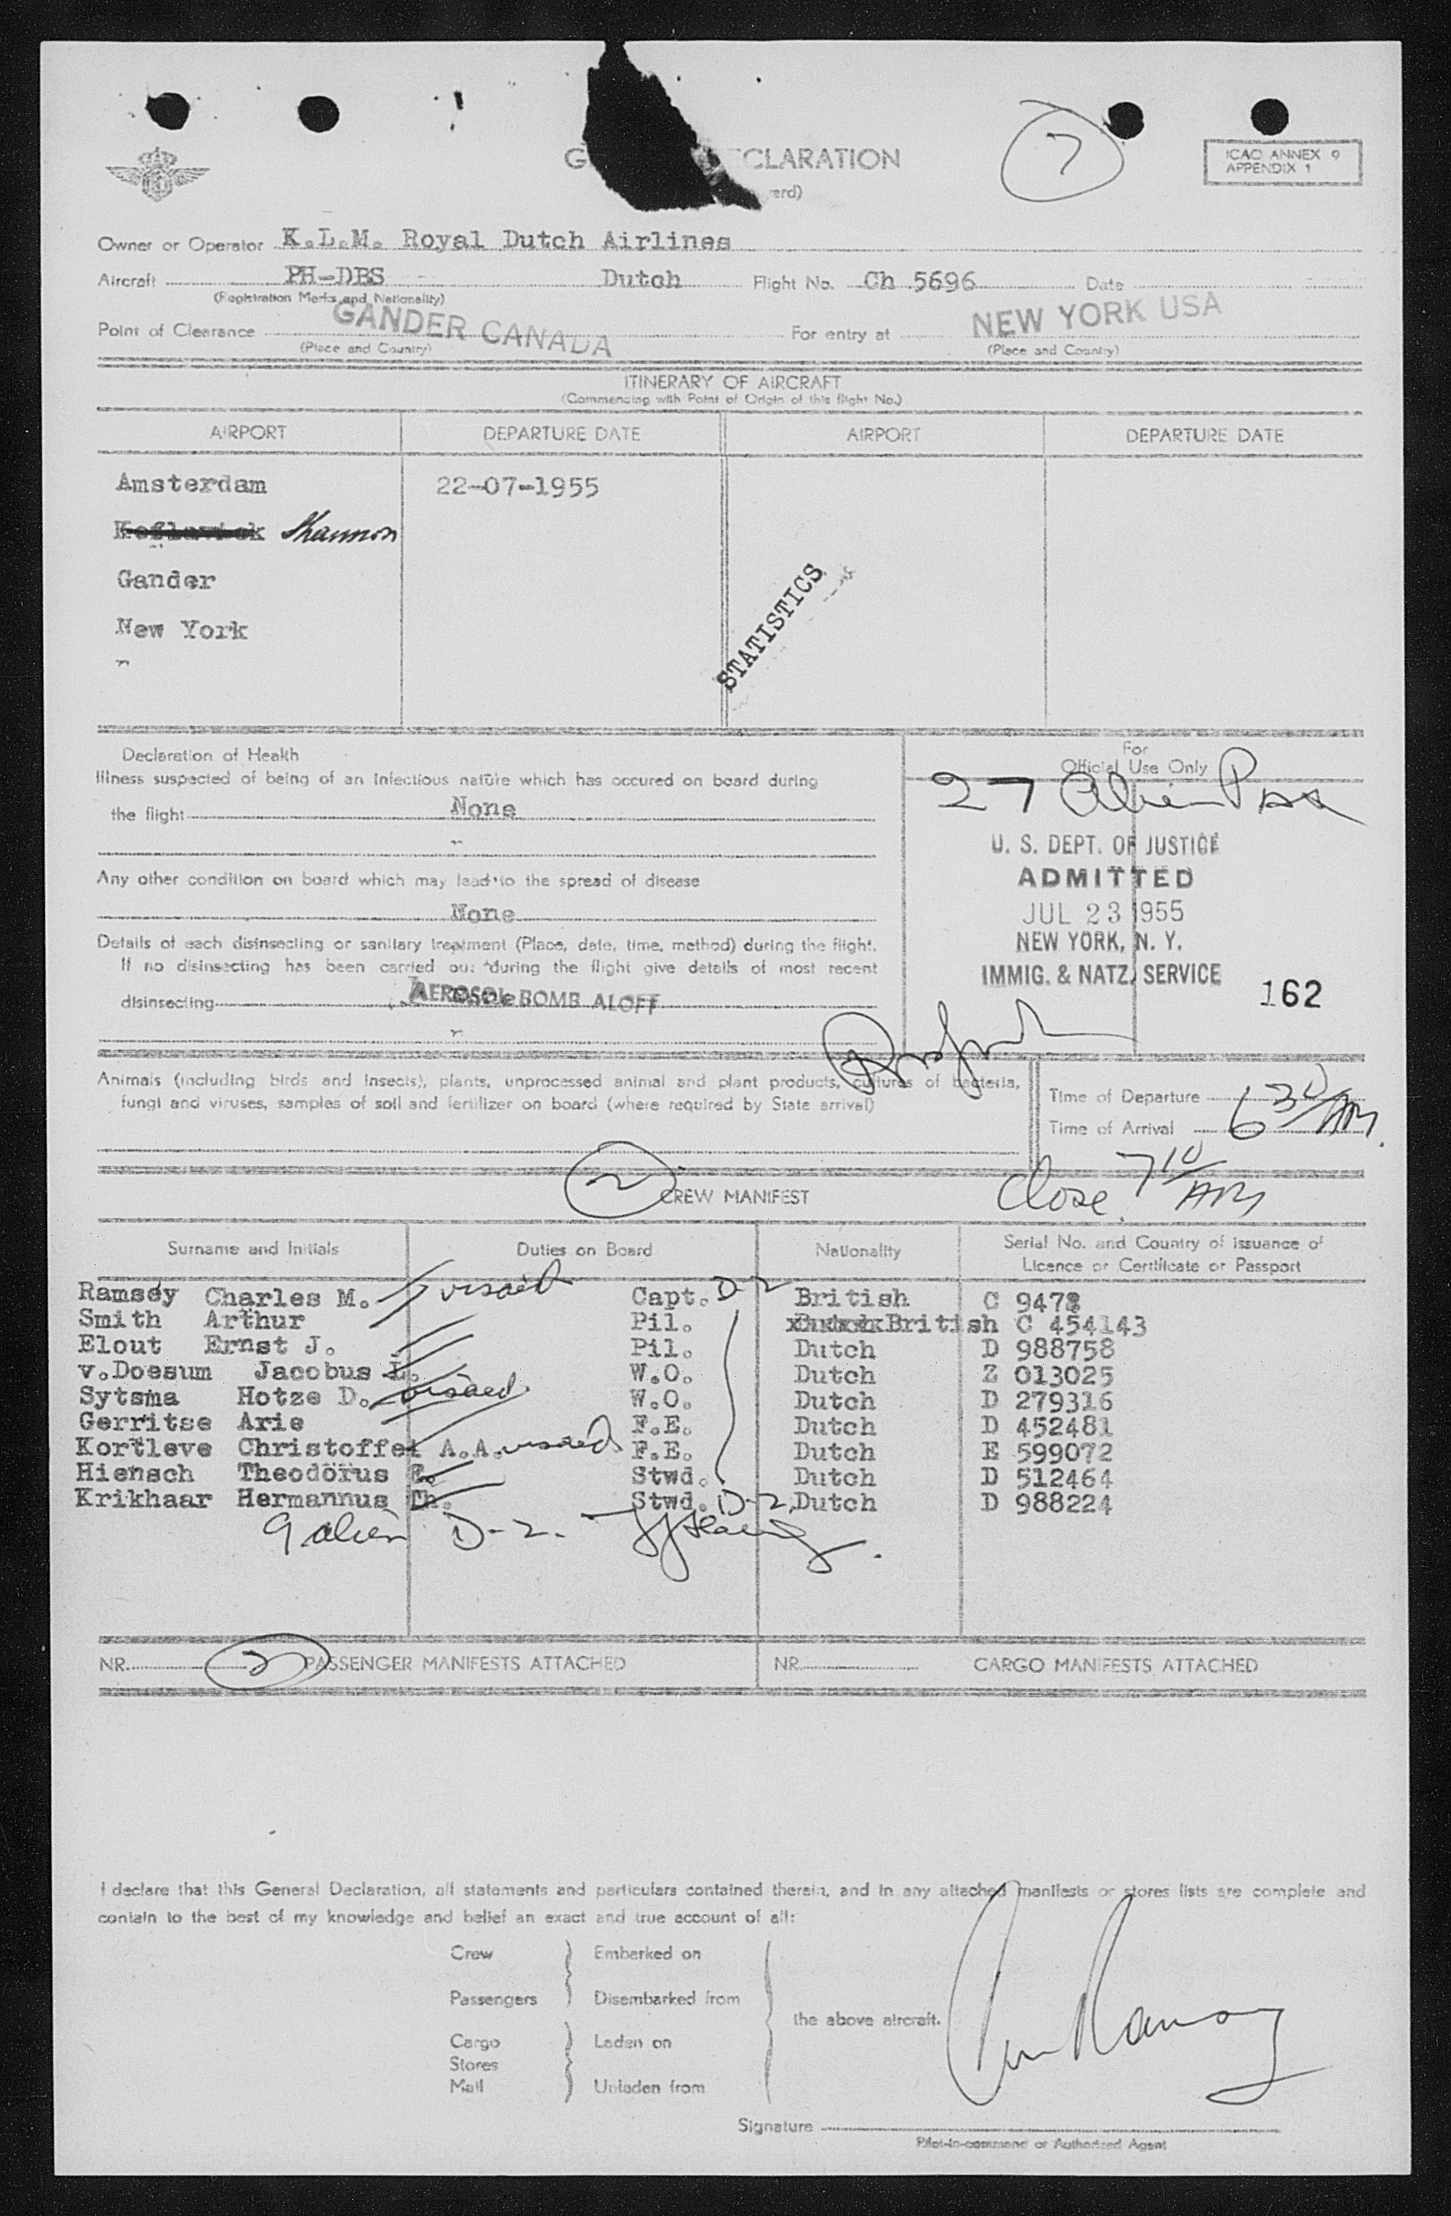 7
ICAO ANNEX 9
APPENDIX 1
Owner or Operator K.L.M. Royal Dutch Airlines
Aircraft PH-DBS Dutch Flight No. Ch 5696 Date
(Registration Marks and Nationality)
Point of Clearance GANDER CANADA For entry at NEW YORK USA
(Place and Country) (Place and Country)
ITINERARY OF AIRCRAFT
(Commencing with Point of Origin of this flight No.)
AIRPORT DEPARTURE DATE AIRPORT DEPARTURE DATE
Amsterdam 22-07-1955
Shannon
Gander
New York
STATISTICS
Declaration of Health
Illness suspected of being of an infectious nature which has occured on board during
the flight None
Any other condition on board which may lead to the spread of disease
None
Details of each disinsecting or sanitary treatment (Place, date, time, method) during the flight.
If no disinsecting has been carried out during the flight give details of most recent
disinsecting AEROSOL BOMB ALOFT
For
Official Use Only
27 Alien Pax
U. S. DEPT. OF JUSTICE
ADMITTED
JUL 23 1955
NEW YORK, N. Y.
IMMIG. & NATZ. SERVICE
162
Animals (including birds and insects), plants, unprocessed animal and plant products, cultures of bacteria,
fungi and viruses, samples of soil and fertilizer on board (where required by State arrival)
Time of Departure
Time of Arrival 6 30/AM.
Close. 7 10/AM
2
CREW MANIFEST
Surname and Initials Duties on Board Nationality Serial No. and Country of issuance of
Licence or Certificate or Passport
Ramsey Charles M. visaed Capt. D-2 British C 9478
Smith Arthur Pil. British C 454143
Elout Ernst J. Pil. Dutch D 988758
v.Doesum Jacobus L. W.O. Dutch Z 013025
Sytsma Hotze D. visaed W.O. Dutch D 279316
Gerritse Arie F.E. Dutch D 452481
Kortleve Christoffel A.A. visaed F.E. Dutch E 599072
Hiensch Theodorus Stwd. Dutch D 512464
Krikhaar Hermannus Th. Stwd. D-2 Dutch D 988224
9 alien D-2.
NR. 2 PASSENGER MANIFESTS ATTACHED NR. CARGO MANIFESTS ATTACHED
I declare that this General Declaration, all statements and particulars contained therein, and in any attached manifests or stores lists are complete and
contain to the best of my knowledge and belief an exact and true account of all:
Crew Embarked on
Passengers Disembarked from
the above aircraft.
Cargo Laden on
Stores
Mail Unladen from
Signature
Pilot-in-command or Authorized Agent